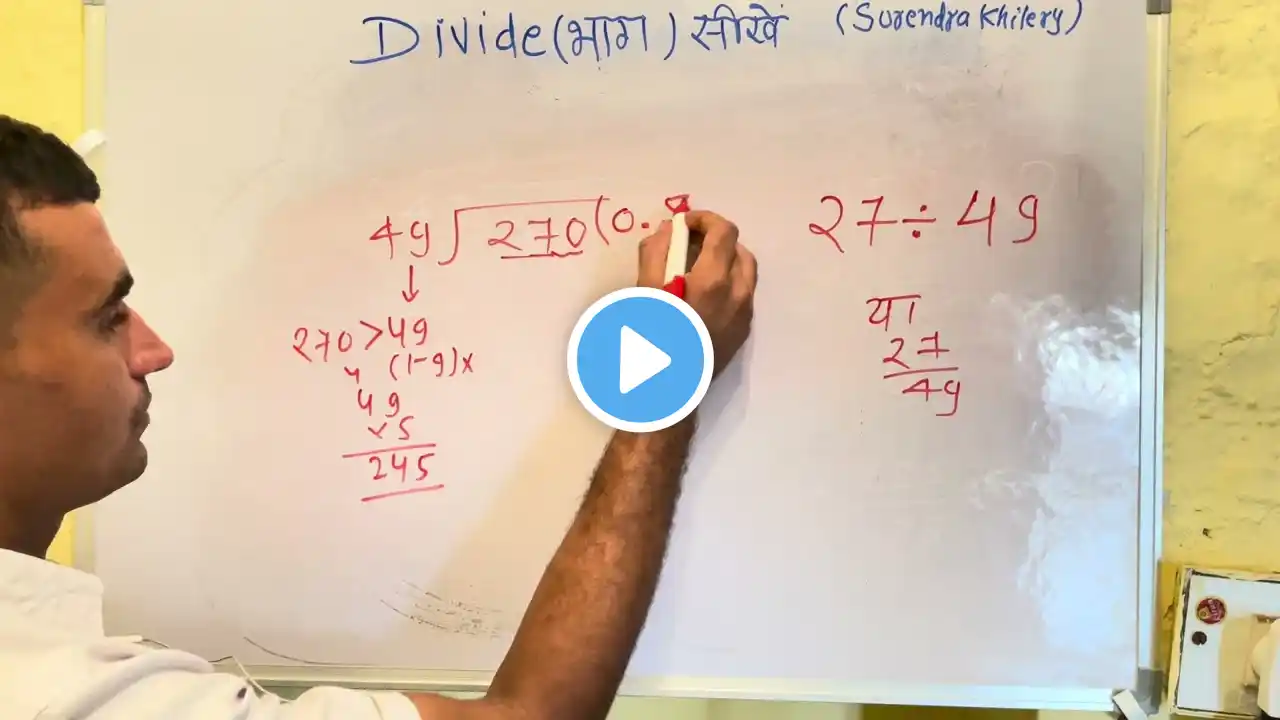 Divide (भाग) सीखें (Surendra Khilery)
49 270 (0.
27 ÷ 49
270 > 49
(1-9)x
49
x5
245
या
27
49